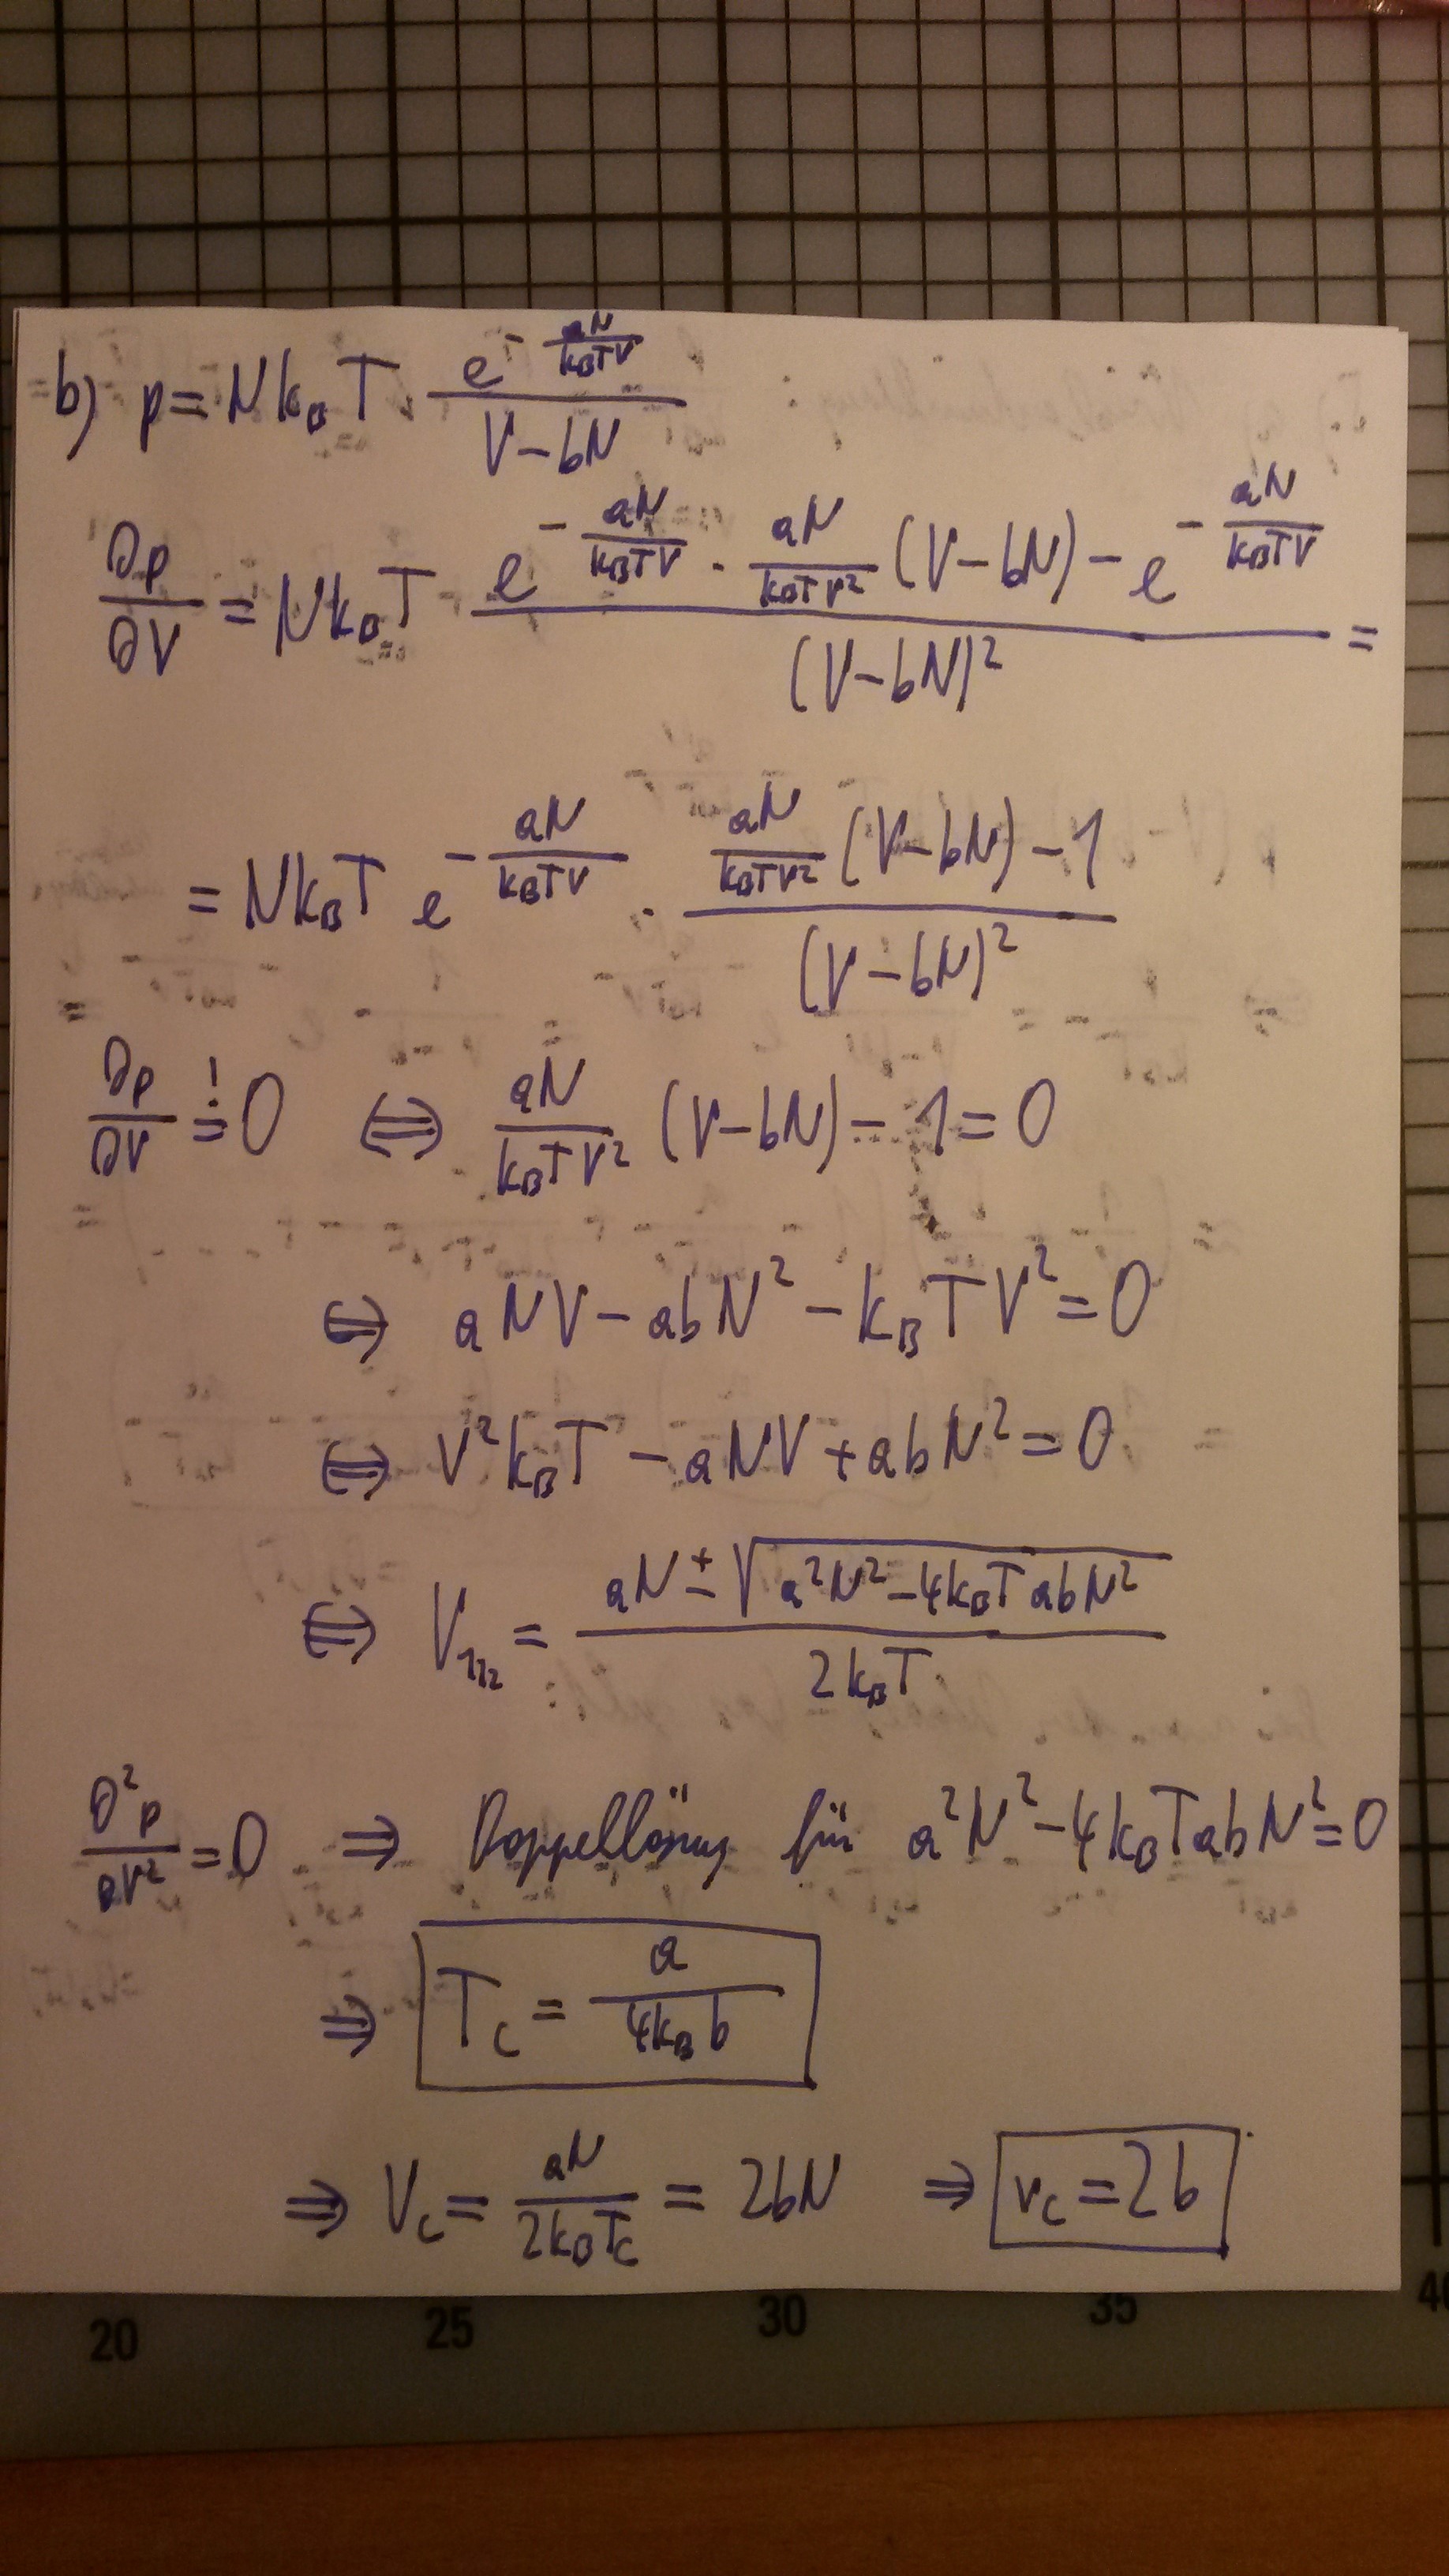 b) p = N k_B T · e^{-\frac{aN}{k_B T V}} / (V - bN)
∂p/∂V = N k_B T (e^{-\frac{aN}{k_B T V}} · \frac{aN}{k_B T V^2} (V - bN) - e^{-\frac{aN}{k_B T V}}) / (V - bN)^2 =
= N k_B T e^{-\frac{aN}{k_B T V}} · (\frac{aN}{k_B T V^2} (V - bN) - 1) / (V - bN)^2
∂p/∂V =^! 0 ⇔ \frac{aN}{k_B T V^2} (V - bN) - 1 = 0
⇔ aNV - abN^2 - k_B T V^2 = 0
⇔ V^2 k_B T - aNV + abN^2 = 0
⇔ V_{1,2} = (aN ± √(a^2 N^2 - 4 k_B T abN^2)) / (2 k_B T)
∂^2p/∂V^2 = 0 ⇒ Doppellösung für a^2 N^2 - 4 k_B T abN^2 = 0
⇒ T_c = a / (4 k_B b)
⇒ V_c = aN / (2 k_B T_c) = 2bN ⇒ v_c = 2b
20 25 30 35